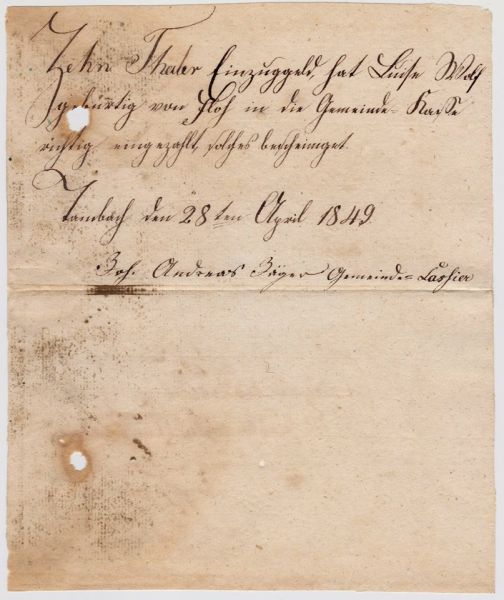 Zehn Thaler Einzuggeld, hat Luise Wolf
gebürtig von Floh in die Gemeinde-Kasse
richtig eingezahlt, solches bescheiniget.
Tambach den 28ten April 1849
Joh. Andreas Jäger Gemeinde-Cassier